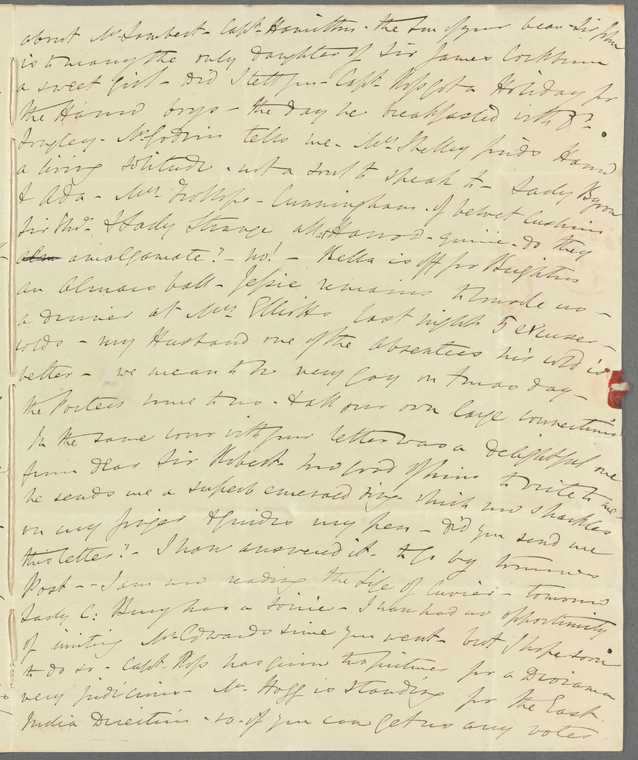 about Mr Lambert - Captn Hamilton - the son of your beau - Sir John
is to marry the only daughter of Sir James Cockburn
a sweet girl - Did I tell you Captn Ross got a Holiday for
the Harrow boys - the day he breakfasted with Dr
Longley - Mr Godwin tells me - Mrs Shelley finds Harrow
a living solitude - not a soul to speak to - Lady Byron
& Ada - Mrs Trollope - Cunningham - of velvet Cushions
Sir Thos & Lady Strange all at Harrow - quiie - do they
amalgamate? - no! - Bella is off for Brighton
an Almacs ball - Jessie remains to
a dinner at Mrs Elliotts last night 5 excuses -
colds - my Husband one of the absentees his cold is
better - we mean to be very gay on Xmas day -
the Porters come to us - & all our own large connections
In the same cover with your letter was a delightful one
from dear Sir Robert how good of him to write to me -
he sends me a superb emerald ring which now sparkles
on my finger & guides my pen - did you send me
this letter? - I have answered it - to go by tomorrows
Post - - I am now reading the Life of Cuvier - tomorrow
Lady C: Bury has a soirée - I have had no opportunity
of inviting Mr Edwards since you went - but I hope soon
to do so - Captn Ross has given his pictures for a Diorama
very judicious - Mr Hogg is standing for the East
India Direction - so - if you can get us any votes